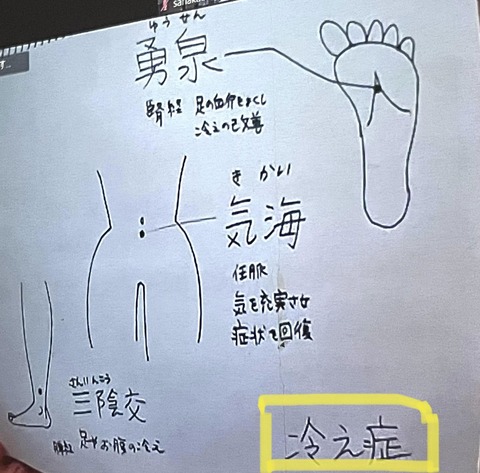 ゆうせん
勇泉
腎経 足の血行をよくし
冷えの改善
きかい
気海
任脈
気を充実させ
症状を回復
さんいんこう
三陰交
脾経 足やお腹の冷え
冷え症